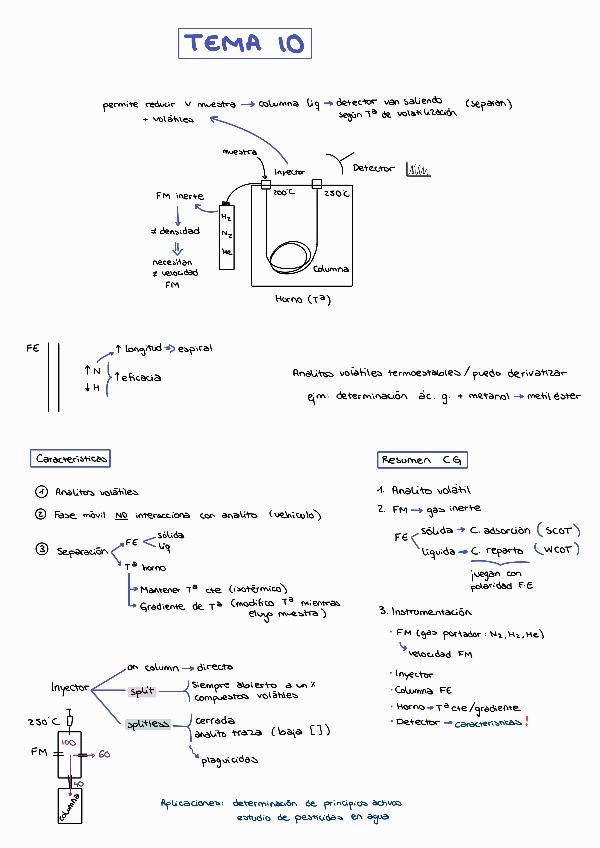 TEMA 10
permite reducir V muestra → columna líq → detector van saliendo (separan)
+ volátiles
según Tª de volatilización
muestra
Inyector
Detector
200°C
250°C
FM inerte
H2
N2
He
≠ densidad
necesitan
≠ velocidad
FM
Columna
Horno (Tª)
FE
↑ longitud → espiral
↑ N
↓ H
↑ eficacia
Analitos volátiles termoestables / puedo derivatizar
ejm: determinación ác. g. + metanol → metil éster
Características
① Analitos volátiles
② Fase móvil NO interacciona con analito (vehículo)
③ Separación
FE
sólida
líq
Tª horno
→ Mantener Tª cte (isotérmico)
→ Gradiente de Tª (modifico Tª mientras
eluyo muestra)
Resumen CG
1. Analito volátil
2. FM → gas inerte
FE
sólida → C. adsorción (SCOT)
líquida → C. reparto (WCOT)
juegan con
polaridad F.E
3. Instrumentación
· FM (gas portador: N2, H2, He)
velocidad FM
· Inyector
· Columna FE
· Horno → Tª cte/gradiente
· Detector → características!
Inyector
on column → directo
split
Siempre abierto a un %
compuestos volátiles
splitless
cerrada
analito traza (baja [])
plaguicidas
250°C
FM
100
→ 60
40
columna
Aplicaciones: determinación de principios activos
estudio de pesticidas en agua